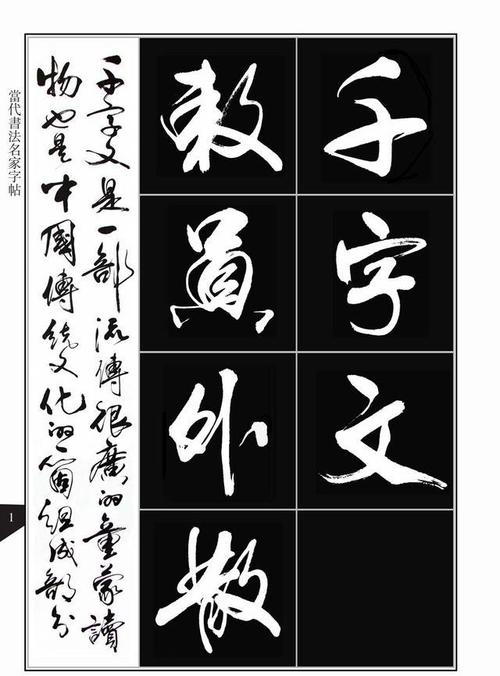 千字文
敕員外散
千字文是一部流傳很廣的童蒙讀
物也是中國傳統文化的一個組成部分
當代書法名家字帖
1